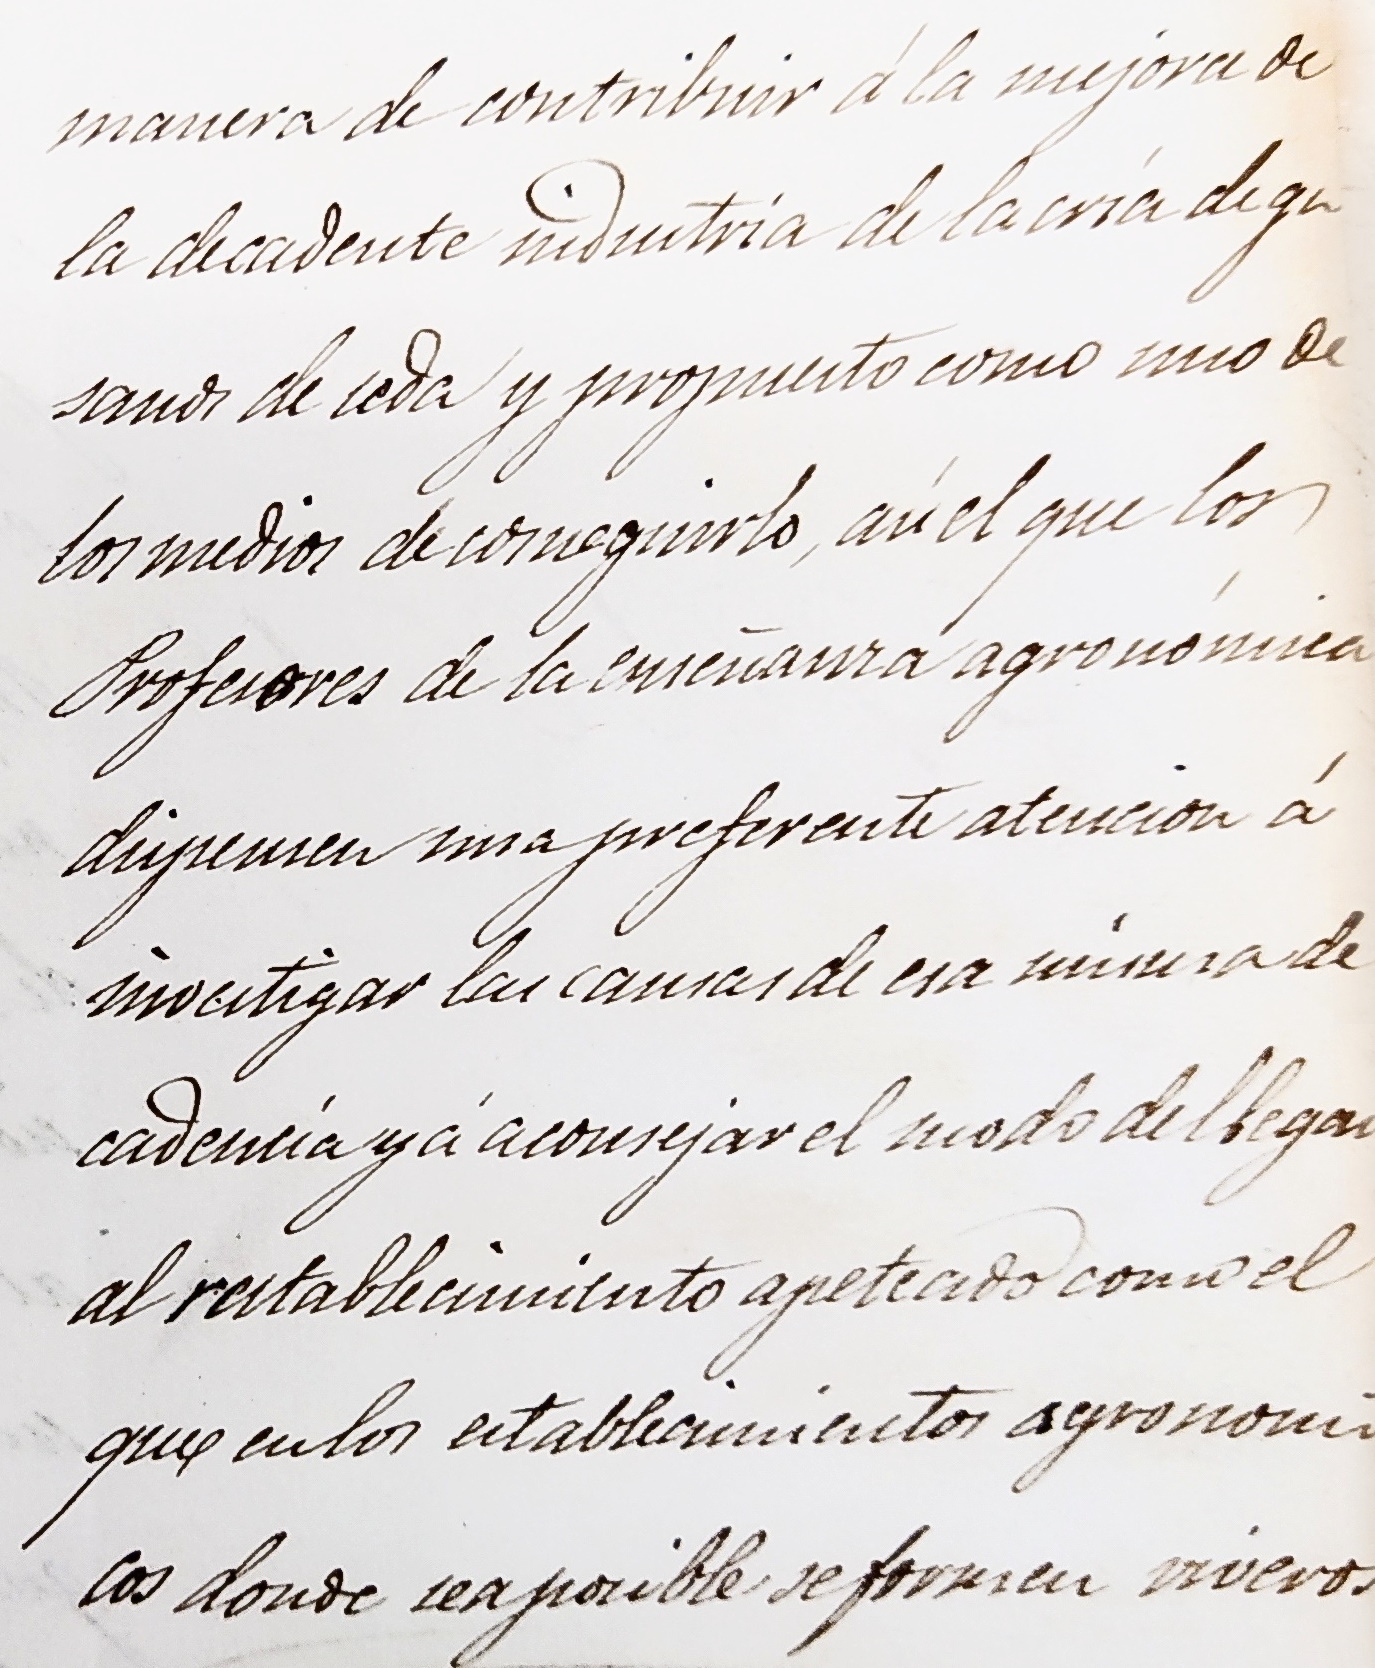 manera de contribuir á la mejora de
la decadente industria de la cría de gu
sanos de seda y propuesto como uno de
los medios de conseguirlo, así el que los
Profesores de la enseñanza agronómica
dispensen una preferente atencion á
investigar las causas de esa misma de
cadencia y á aconsejar el modo de llegar
al restablecimiento apetecido como el
que en los establecimientos agronómi
cos donde sea posible se formen viveros